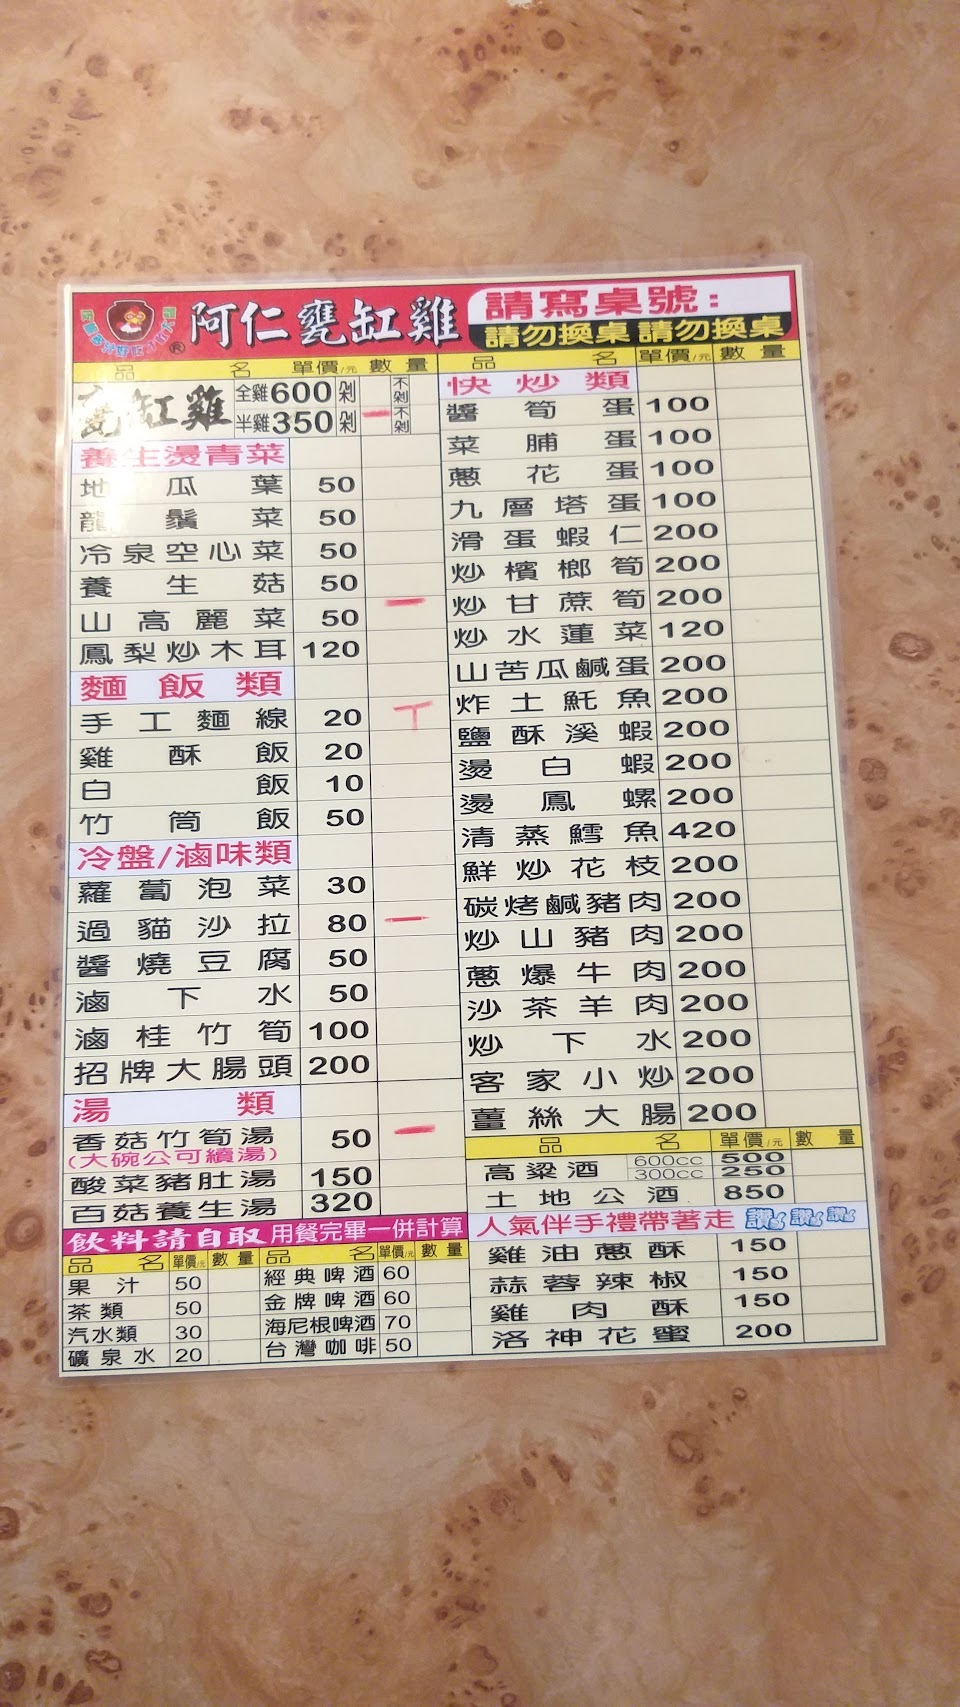 阿仁甕缸雞
®
請寫桌號:
請勿換桌 請勿換桌
品 名 單價/元 數 量
甕缸雞 全雞600 剁 不剁
半雞350 剁 一 不剁
養生燙青菜
地瓜葉 50
龍鬚菜 50
冷泉空心菜 50
養生菇 50
山高麗菜 50 一
鳳梨炒木耳 120
麵飯類
手工麵線 20 丅
雞酥飯 20
白飯 10
竹筒飯 50
冷盤/滷味類
蘿蔔泡菜 30
過貓沙拉 80 一
醬燒豆腐 50
滷下水 50
滷桂竹筍 100
招牌大腸頭 200
湯類
香菇竹筍湯 50 一
(大碗公可續湯)
酸菜豬肚湯 150
百菇養生湯 320
飲料請自取 用餐完畢一併計算
品 名 單價/元 數 量 品 名 單價/元 數 量
果汁 50 經典啤酒 60
茶類 50 金牌啤酒 60
汽水類 30 海尼根啤酒 70
礦泉水 20 台灣咖啡 50
品 名 單價/元 數 量
快炒類
醬筍蛋 100
菜脯蛋 100
蔥花蛋 100
九層塔蛋 100
滑蛋蝦仁 200
炒檳榔筍 200
炒甘蔗筍 200
炒水蓮菜 120
山苦瓜鹹蛋 200
炸土魠魚 200
鹽酥溪蝦 200
燙白蝦 200
燙鳳螺 200
清蒸鱈魚 420
鮮炒花枝 200
碳烤鹹豬肉 200
炒山豬肉 200
蔥爆牛肉 200
沙茶羊肉 200
炒下水 200
客家小炒 200
薑絲大腸 200
品 名 單價/元 數 量
高粱酒 600cc 500
300cc 250
土地公酒 850
人氣伴手禮帶著走 讚 讚 讚
雞油蔥酥 150
蒜蓉辣椒 150
雞肉酥 150
洛神花蜜 200